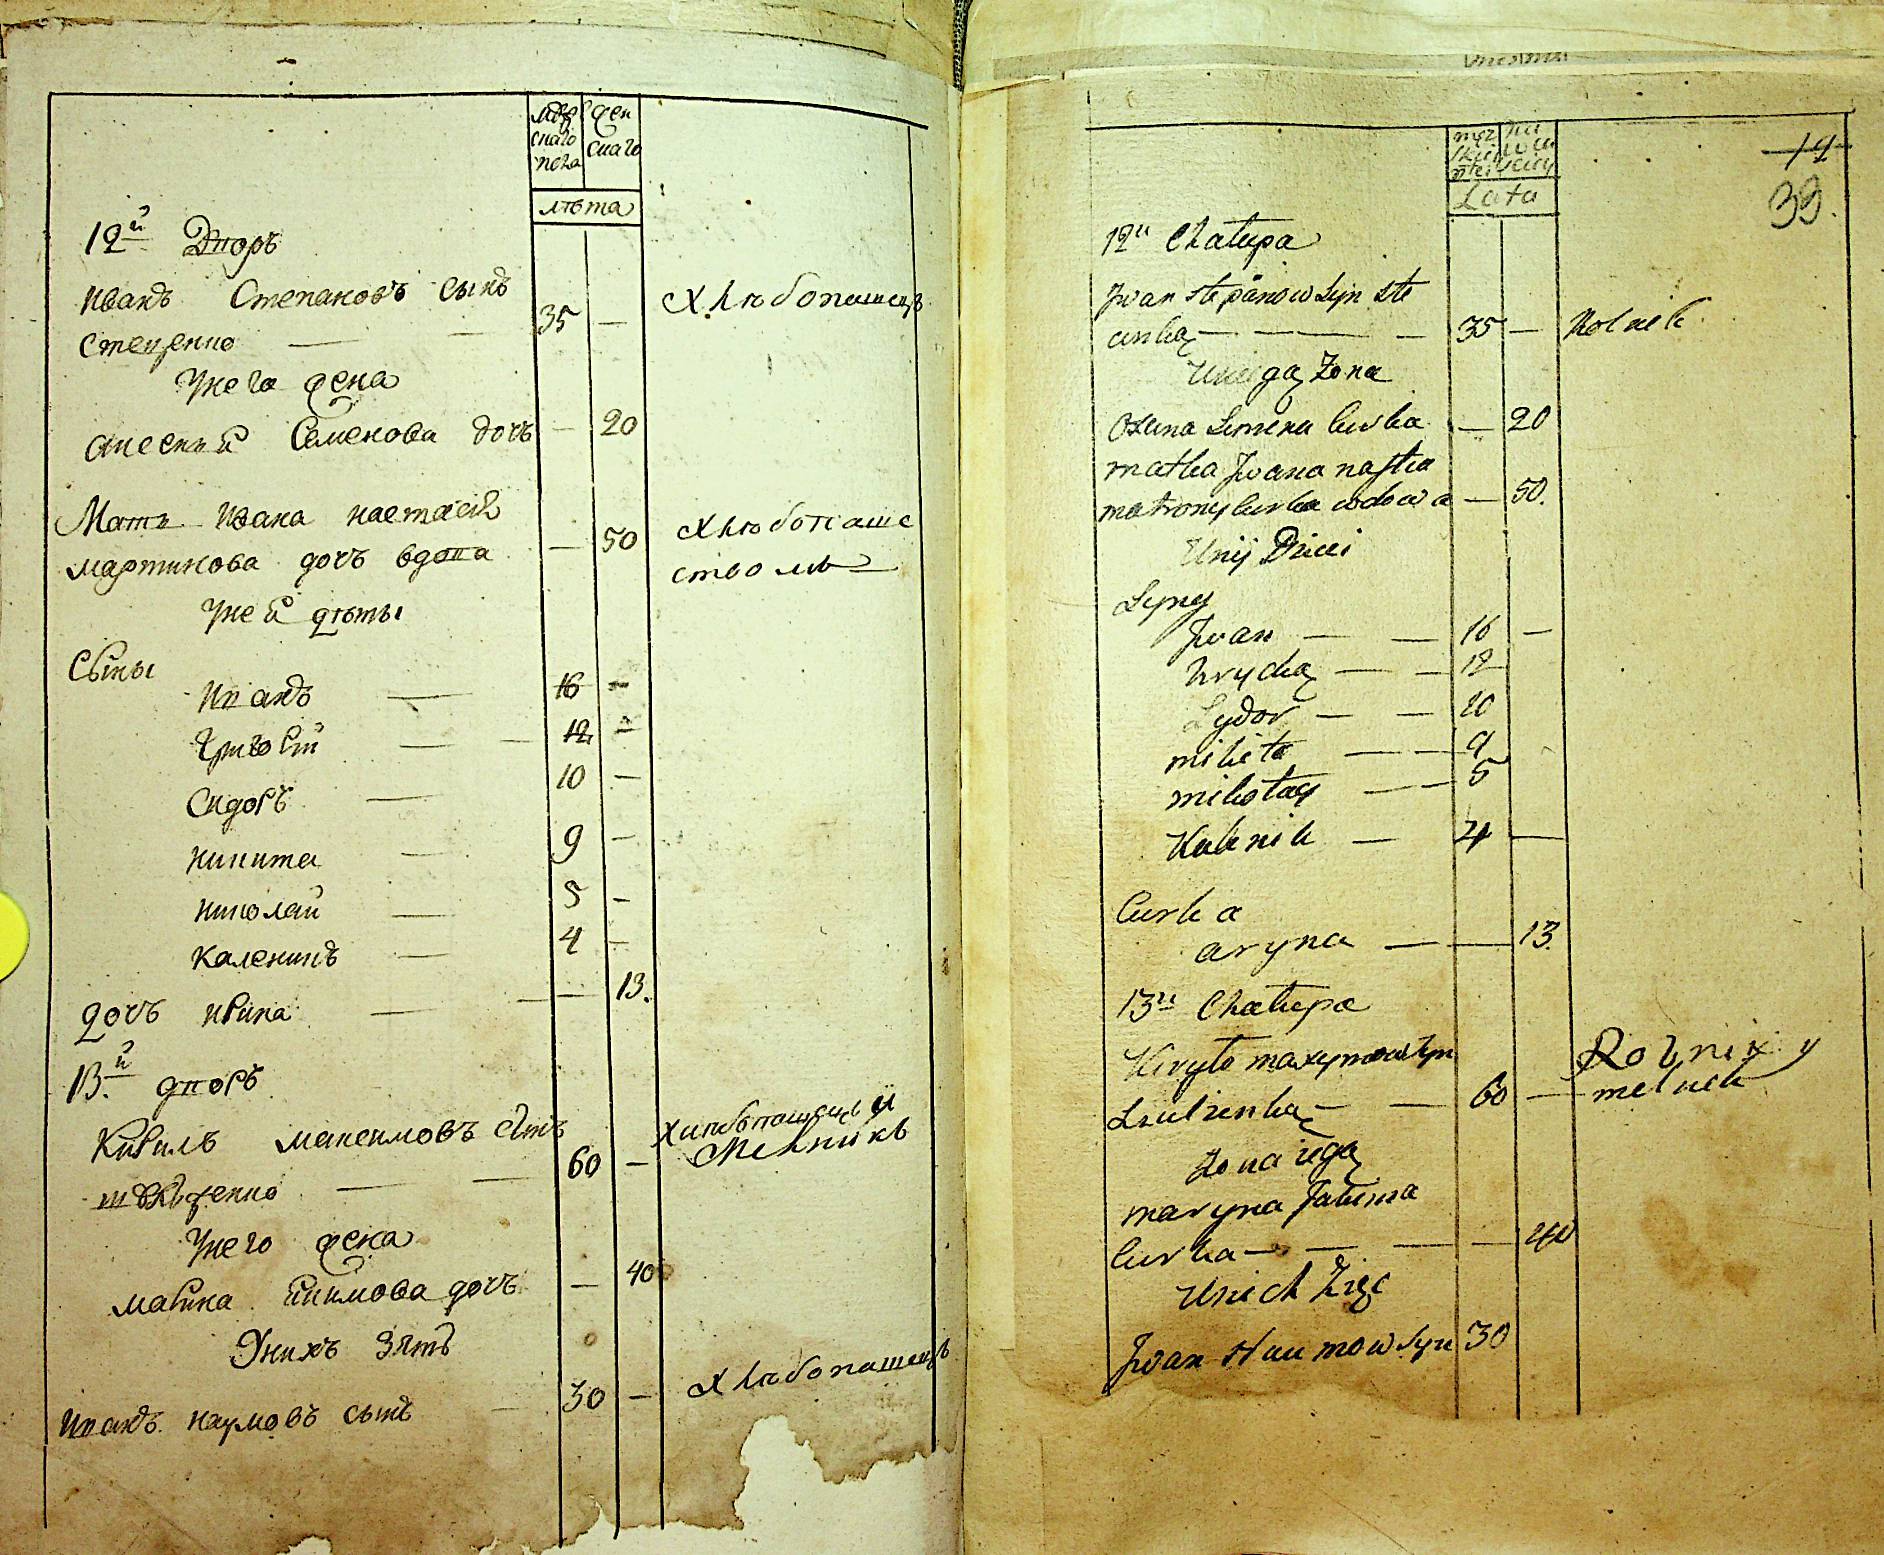 муж
скаго
пола
жен
скаго
лѣта
12й Дворъ
Иванъ Степановъ сынъ
Стеценко — — 35 — Хлѣбопашецъ
У него жена
Семенова дочь — 20
Мать Ивана Настасія
Мартинова дочь вдова — 50 Хлѣбопаше
ством
У ней дѣты
Сыны
Иванъ — 16 —
Григорій — — 12 —
Сидоръ — 10 —
Никита — 9 —
Николай — 5 —
Каленикъ — 4 —
Дочь Ирина — — — 13.
13.й дворъ
Кирилъ Максимовъ сынъ Хлибопашецъ и
— — 60 — Мелникъ
У него жена
Марина Якимова дочь — 40
У нихъ зять
Иванъ Наумовъ сынъ — 30 — Хлѣбопашецъ
14
39.
Lata
12ы Chatupa
Jwan stepanow syn ste
— — — 35 — Rolnik
Zona
Semena Curka — 20
matka Jwana nastia
Curka wdowa — 50.
Unij Dzieci
Syny
Jwan — — 16 —
hrycka — — 12
Sydor — — 10
mikita — — 9
mikotay — — 5
Kalenik — 4 —
Curka
aryna — — 13.
13ы Chatupa
Kiryto maxymow syn Rolnik y
— — 60 — melnik
Zona iega
maryna Jakima
Curka — — — — 40
Unich Zięc
Jwan Naumow syn 30